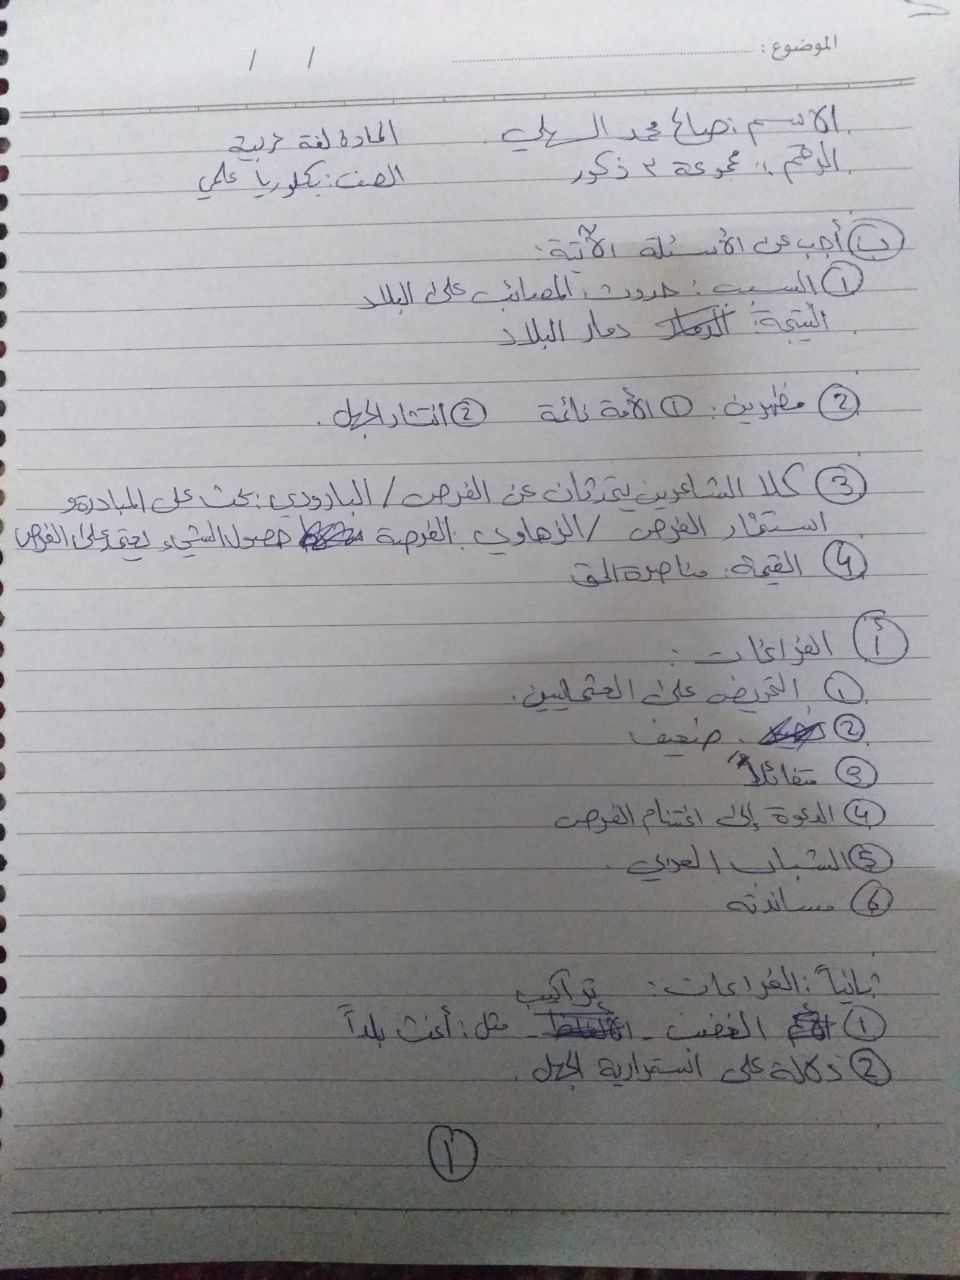 الموضوع : / /
الاسم : صالح محمد السهلي المادة لغة عربية
الرقم : مجموعة ٢ ذكور الصف : بكلوريا علمي
ب أجب عن الأسئلة الآتية :
1 السبب : حدوث المصائب على البلاد
النتيجة : دمار البلاد
2 مظهرين : 1 الأمة نائمة 2 انتشار الجهل .
3 كلا الشاعرين يتحدثان عن الفرص / البارودي : يحث على المبادرة و
استثمار الفرص / الزهاوي : الفرصة حصول الشيء يعتمد على الفرص
4 القيمة : مناصرة الحق
أ الفراغات :
1 التحريض على العثمانيين .
2 ضعيف
3 متفائلاً
4 الدعوة إلى اغتنام الفرص
5 الشباب العربي .
6 مساندته
ثانياً : الفراغات :
تراكيب
1 الغضب - - مثل : أغث بلداً
2 دلالة على استمرارية الجهل .
1